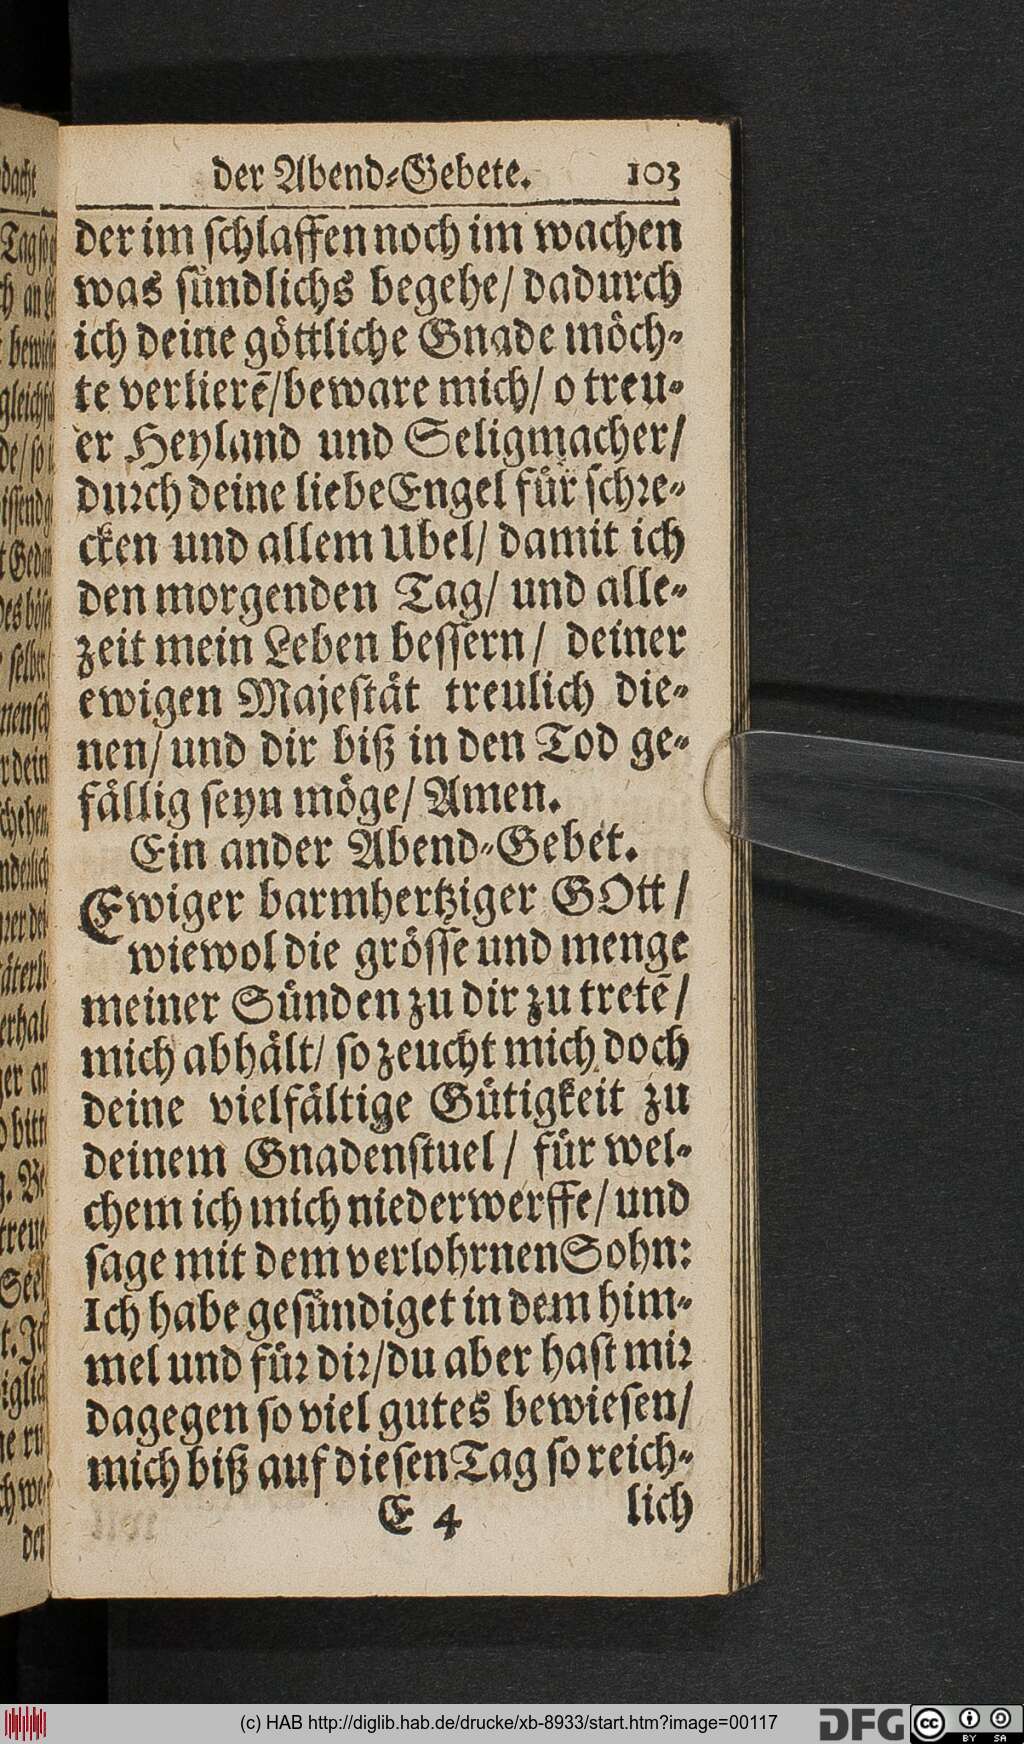 der Abend-Gebete. 103
der im schlaffen noch im wachen
was sündlichs begehe/ dadurch
ich deine göttliche Gnade möch-
te verlierē/ beware mich/ o treu-
er Heyland und Seligmacher/
durch deine liebe Engel für schre-
cken und allem Ubel/ damit ich
den morgenden Tag/ und alle-
zeit mein Leben bessern/ deiner
ewigen Majestät treulich die-
nen/ und dir biß in den Tod ge-
fällig seyn möge/ Amen.
Ein ander Abend-Gebet.
Ewiger barmhertziger GOtt/
wiewol die grösse und menge
meiner Sünden zu dir zu tretē/
mich abhält/ so zeucht mich doch
deine vielfältige Gütigkeit zu
deinem Gnadenstuel/ für wel-
chem ich mich niederwerffe/ und
sage mit dem verlohrnen Sohn:
Ich habe gesündiget in dem him-
mel und für dir/ du aber hast mir
dagegen so viel gutes bewiesen/
mich biß auf diesen Tag so reich-
E 4 lich
(c) HAB http://diglib.hab.de/drucke/xb-8933/start.htm?image=00117
DFG cc BY SA